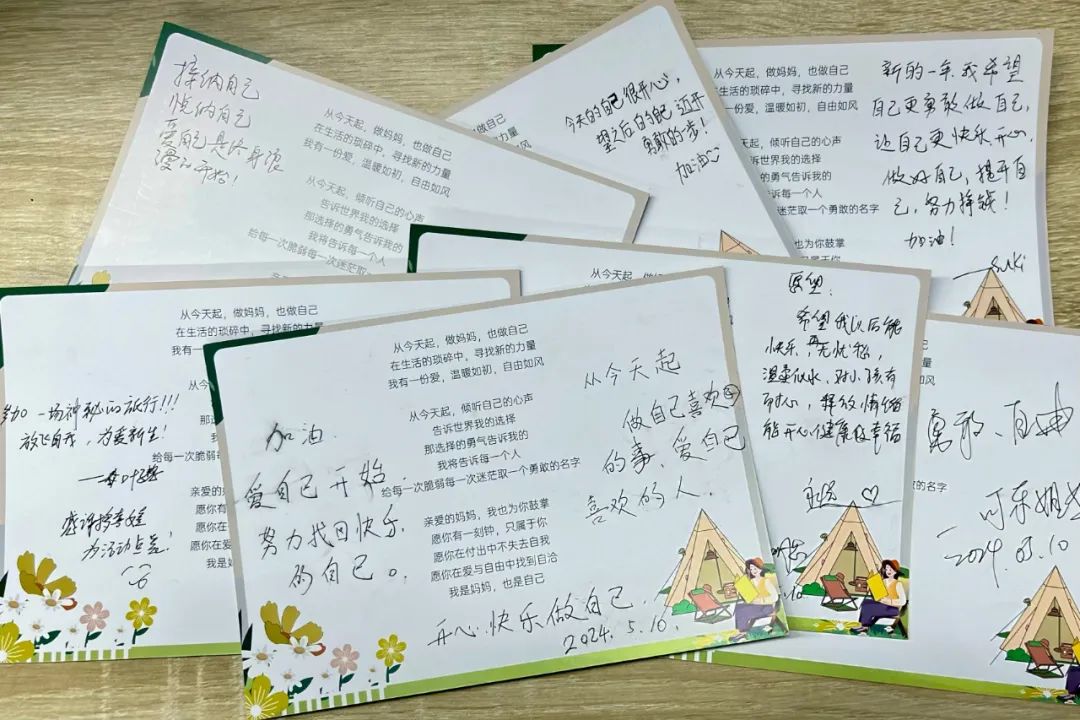 接纳自己
悦纳自己
爱自己是终身浪
漫的开始！
从今天起，做妈妈，也做自己
在生活的琐碎中，寻找新的力量
我有一份爱，温暖如初，自由如风
从今天起，倾听自己的心声
告诉世界我的选择
那选择的勇气告诉我的
我将告诉每一个人
给每一次脆弱每一次迷茫取
做自己
的力量
今天的自己很开心，
望之后的自己迈开
勇敢的一步！
加油
从今天起，做妈妈，也做自己
生活的琐碎中，寻找新的力量
一份爱，温暖如初，自由如风
起，倾听自己的心声
诉世界我的选择
的勇气告诉我的
诉每一个人
迷茫取一个勇敢的名字
也为你鼓掌
新的一年，我希望
自己更勇敢做自己，
让自己更快乐开心，
做好自己，提升自
己，努力挣钱！
加油！
Suki
从今天起，做妈妈，也做自己
在生活的琐碎中，寻找新的力量
我有一
从今
那选
给每一次脆弱
亲爱的
愿你有
愿你在
愿你在爱
我是
一场神秘的旅行！！！
放飞自我，为爱新生！
为活动点赞！
从今天起，做妈妈，也做自己
在生活的琐碎中，寻找新的力量
我有一份爱，温暖如初，自由如风
从今天起，倾听自己的心声
告诉世界我的选择
那选择的勇气告诉我的
我将告诉每一个人
给每一次脆弱每一次迷茫取一个勇敢的名字
亲爱的妈妈，我也为你鼓掌
愿你有一刻钟，只属于你
愿你在付出中不失去自我
愿你在爱与自由中找到自洽
我是妈妈，也是自己
加油
爱自己开始
努力找回快乐
的自己。
从今天起
做自己喜欢的
的事、爱自己
喜欢的人.
开心.快乐做自己.
2024.5.10.
愿望：
希望我以后能
快乐，无忧愁，
温柔似水，对小孩有
耐心，释放情绪
能开心健康做幸福
勇敢、自由
2024.05.10